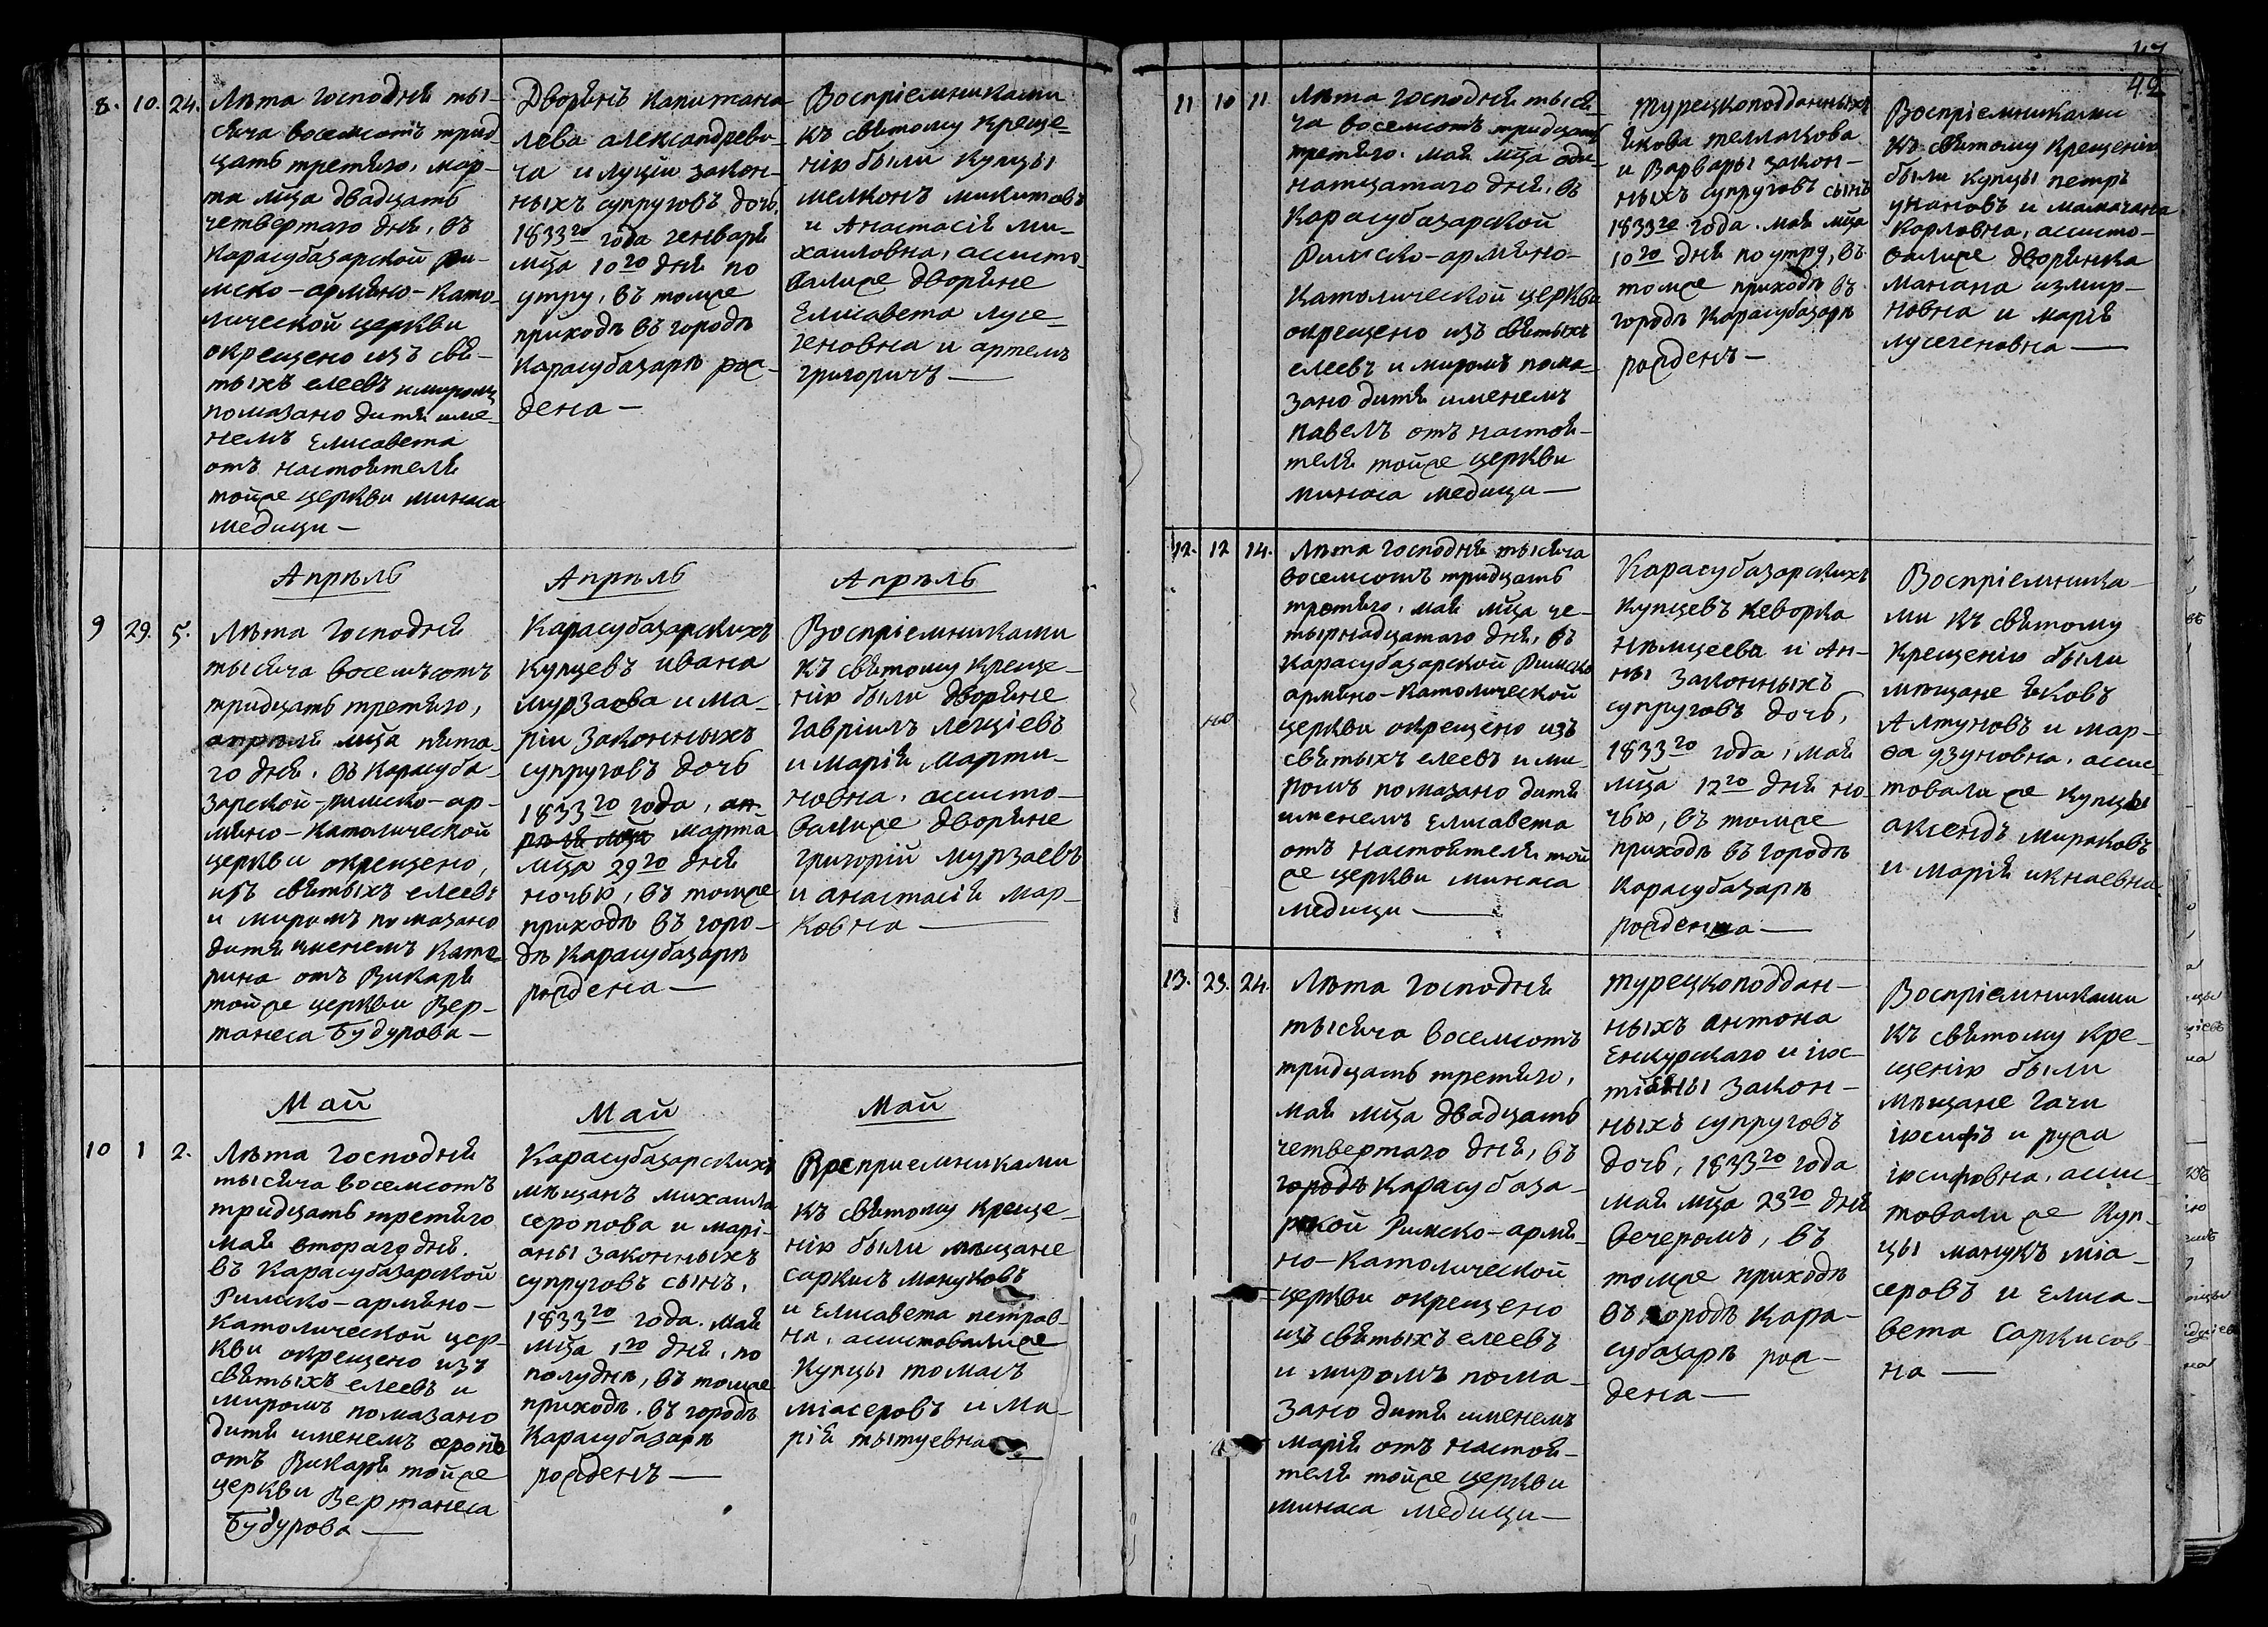 8. 10. 24.
Лѣта Господня ты-
сяча восемсотъ трид-
цать третяго, мар-
та мца двадцать
четвертаго дня, въ
Карасубазарской Ри-
мско-армяно-Като-
лической церкви
окрещено изъ свя-
тыхъ елеевъ и миромъ
помазано дитя име-
немъ Елисавета
отъ настоятеля
тойже церкви минаса
медици —
Дворянъ капитана
лева александрови-
ча и луціи закон-
ныхъ супруговъ дочь,
1833го года генваря
мца 10го дня по
утру, въ томже
приходѣ въ городѣ
Карасубазарѣ рож-
дена —
Воспріемниками
къ святому креще-
нію были купцы
мелконъ микитовъ
и Анастасія ми-
хаиловна, ассисто-
валиже дворяне
Елисавета лусе-
геновна и артемъ
григоричъ —
Апрѣль
Апрѣль
Апрѣль
9 29. 5.
Лѣта Господня
тысяча восемьсотъ
тридцать третяго,
апрѣля мца пята-
го дня, въ Карасуба-
зарской-римско-ар-
мяно-католической
церкви окрещено,
изъ святыхъ елеевъ
и миромъ помазано
дитя именемъ Кате-
рина отъ Викаря
тойже церкви Вер-
танеса Будурова —
Карасубазарскихъ
купцевъ ивана
мурзаева и ма-
ріи законныхъ
супруговъ дочь
1833го года, ап-
рѣля мца марта
мца 29го дня
ночью, въ томже
приходѣ въ горо-
дѣ Карасубазарѣ
рождена —
Воспріемниками
къ святому креще-
нію были дворяне
гавріилъ легціевъ
и марія марти-
новна, ассисто-
валиже дворяне
григорій мурзаевъ
и анастасія мар-
ковна —
Май
Май
Май
10 1 2.
Лѣта Господня
тысяча восемсотъ
тридцать третяго
мая втораго дня.
въ Карасубазарской
Римско-армяно-
католической цер-
кви окрещено изъ
святыхъ елеевъ и
миромъ помазано
дитя именемъ серопъ
отъ Викаря тойже
церкви Вертанеса
Будурова —
Карасубазарскихъ
мѣщанъ михаила
серопова и марі-
аны законныхъ
супруговъ сынъ,
1833го года. мая
мца 1го дня, по
полуднѣ, въ томже
приходѣ, въ городѣ
Карасубазарѣ
рожденъ —
Восприемниками
къ святому креще-
нію были мѣщане
саркисъ мануковъ
и Елисавета петров-
на, ассистовалиже
купцы томасъ
міасеровъ и Ма-
рія тытуевна
42
11 10 11
Лѣта господня тыся-
ча восемсотъ тридцать
третяго. мая мца оди-
натцатаго дня, въ
Карасубазарской
Римско-армяно-
католической церкви
окрещено изъ святыхъ
елеевъ и миромъ пома-
зано дитя именемъ
павелъ отъ настоя-
теля тойже церкви
минаса медици —
турецкоподданныхъ
якова теллацова
и Варвары закон-
ныхъ супруговъ сынъ
1833го года. мая мца
10го дня по утру, въ
томже приходѣ въ
городѣ Карасубазарѣ
рожденъ —
Воспріемниками
къ святому крещенію
были купцы петръ
унановъ и мамачана
Карловна, ассисто-
валиже дворянка
манана измир-
новна и марія
лусегеновна —
12. 12 14.
Лѣта господня тысяча
восемсотъ тридцать
третяго, мая мца че-
тырнадцатаго дня, въ
Карасубазарской Римско
армяно-католической
церкви окрещено изъ
святыхъ елеевъ и ми-
ромъ помазано дитя
именемъ Елисавета
отъ настоятеля той
же церкви минаса
медици —
Карасубазарскихъ
купцевъ кеворка
нѣмцеева и Ан-
ны законныхъ
супруговъ дочь,
1833го года, мая
мца 12го дня но-
чью, въ томже
приходѣ въ городѣ
Карасубазарѣ
рождена —
Воспріемника-
ми къ святому
крещенію были
мѣщане яковъ
Алтуновъ и мар-
ѳа узуновна, ассис-
товали же купцы
аксендъ мираковъ
и марія икнаевна.
13. 23. 24.
Лѣта Господня
тысяча восемсотъ
тридцать третяго,
мая мца двадцать
четвертаго дня, въ
городѣ Карасубаза-
рской Римско-армя-
но-католической
церкви окрещено
изъ святыхъ елеевъ
и миромъ пома-
зано дитя именемъ
марія отъ настоя-
теля тойже церкви
минаса медици —
турецкоподдан-
ныхъ антона
Енкурскаго и іус-
тіаны закон-
ныхъ супруговъ
дочь, 1833го года
мая мца 23го дня
вечеромъ, въ
томже приходѣ
въ городѣ Кара-
субазарѣ рож-
дена —
Воспріемниками
къ святому кре-
щенію были
мѣщане гачи
іосифъ и руза
іосифовна, асси-
товали же куп-
цы манукъ міа-
серовъ и Елиса-
вета Саркисов-
на —